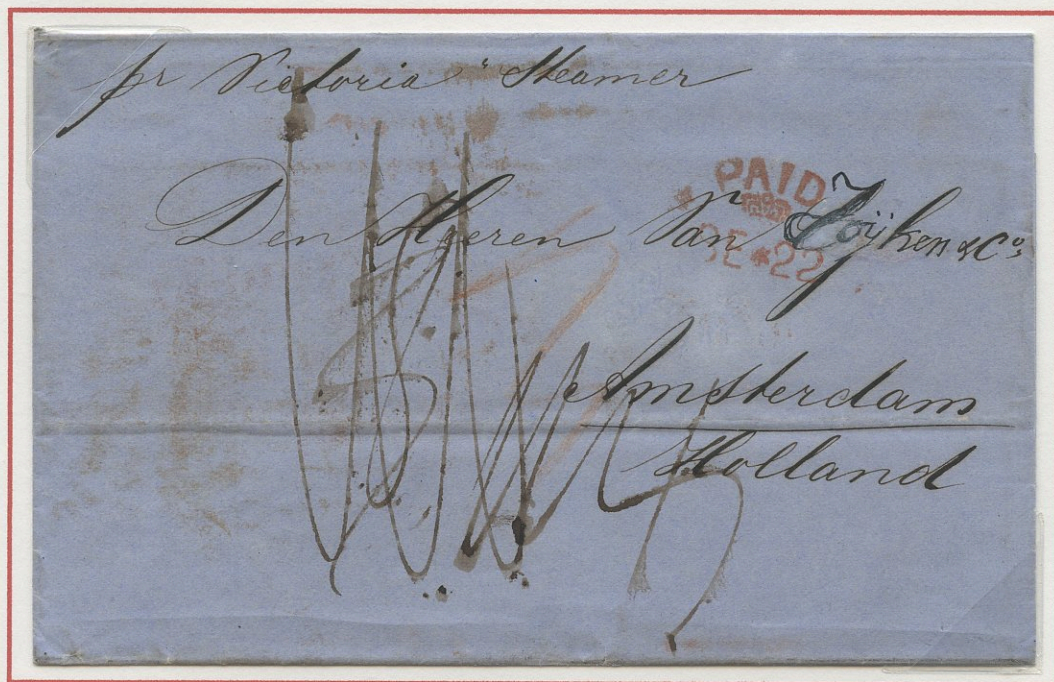 pr Victoria" Steamer
PAID
Den Heeren Van Eÿken & Co.
DE*22
Amsterdam
Holland